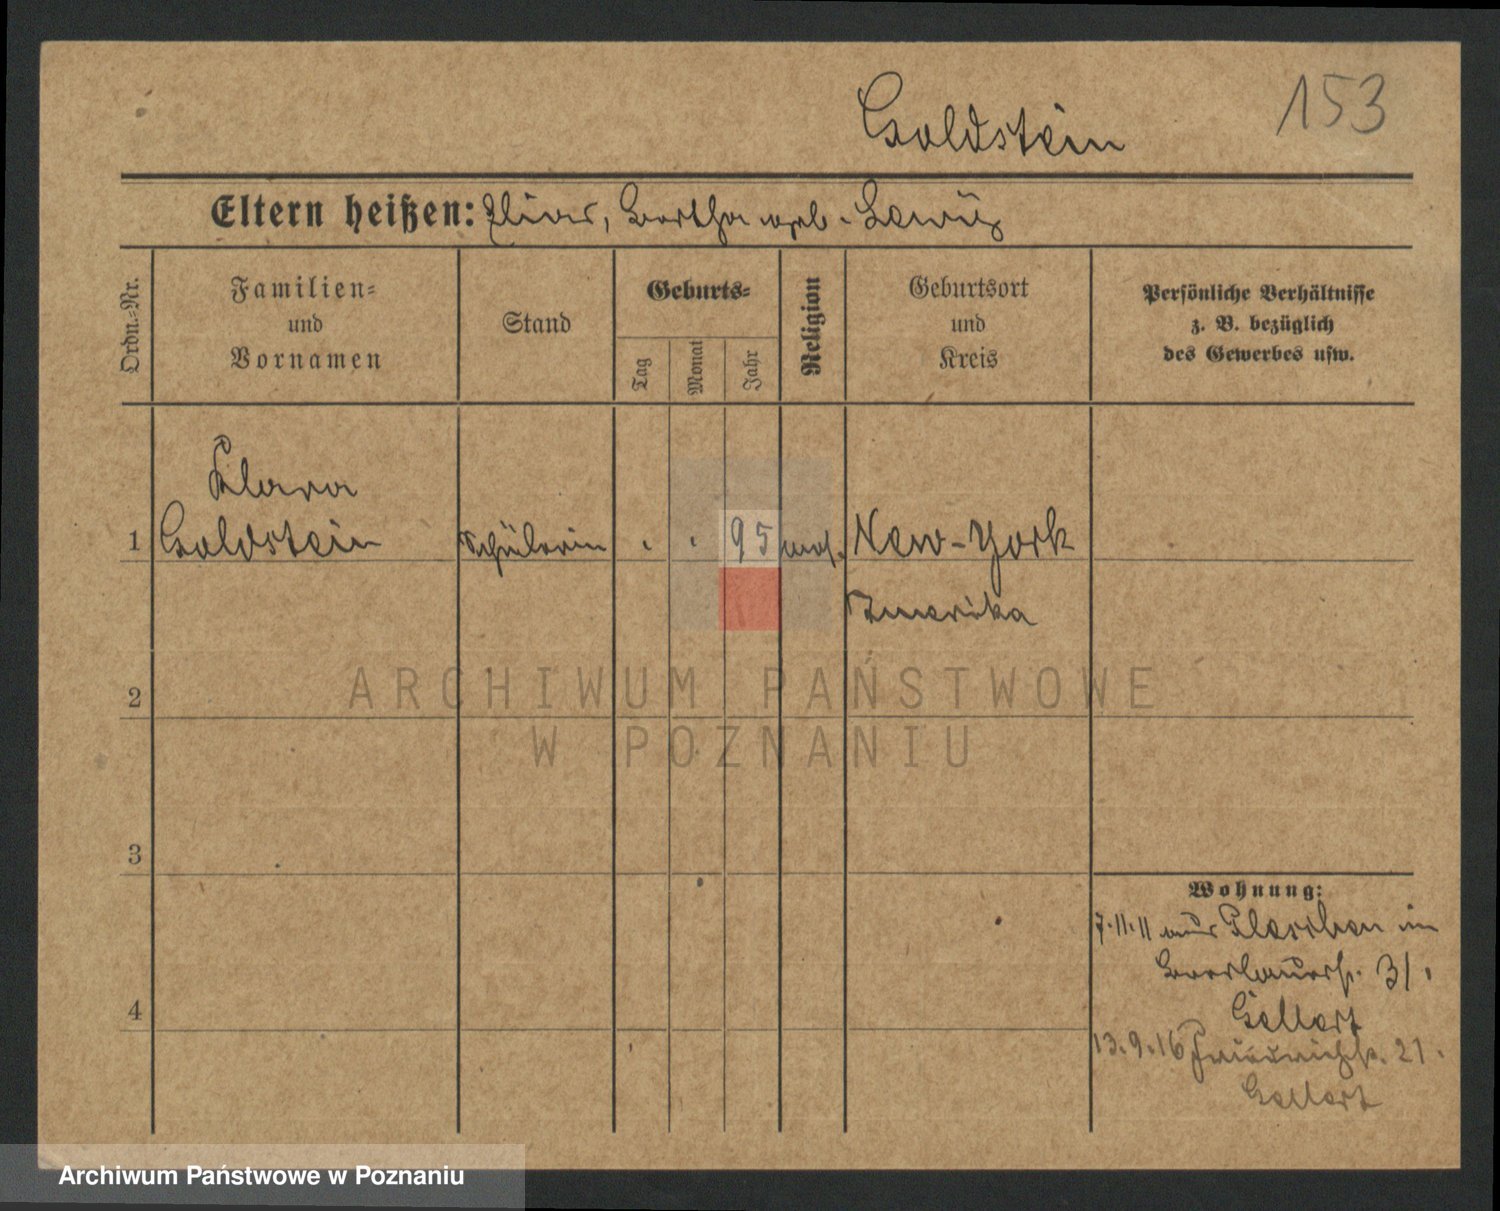 Goldstein
153
Eltern heißen: Elias, Bertha geb. Lewin
Ordn.-Nr.
Familien-
und
Vornamen
Stand
Geburts-
Tag
Monat
Jahr
Religion
Geburtsort
und
Kreis
Persönliche Verhältnisse
z. B. bezüglich
des Gewerbes usw.
Klara
1 Goldstein Schülerin . . 95 mos. New-York
Amerika
ARCHIWUM PAŃSTWOWE
2
W POZNANIU
3
Wohnung:
7.11.11 aus Pleschen in
31.
4
Gellert
13.9.16 Friedrichstr. 21.
Gellert
Archiwum Państwowe w Poznaniu